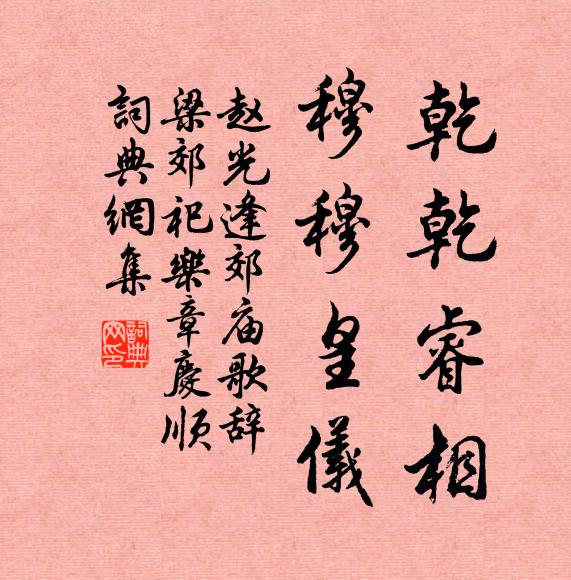 乾乾睿相
穆穆皇儀
赵光逢郊庙歌辞
梁郊祀樂章慶順
詞典網集
詞典網印